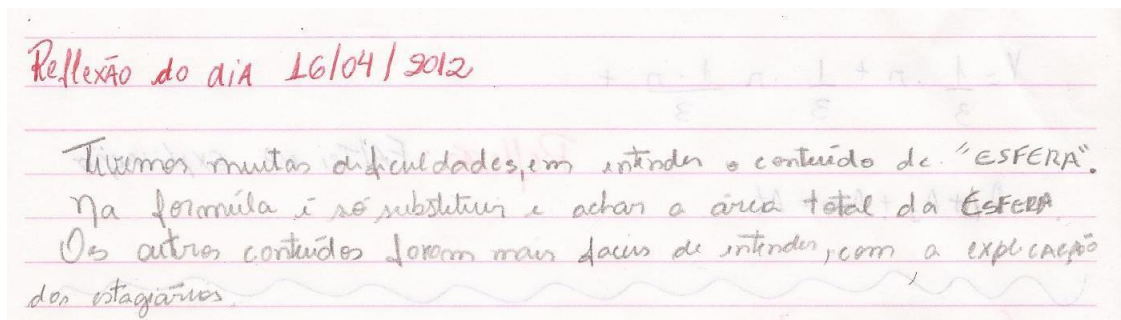 Reflexão do dia 16/04/2012
Tivemos muitas dificuldades, em intender o conteúdo de "ESFERA".
Na formúla é só substituir e achar a área total da ESFERA
Os outros conteúdos foram mais faceis de intender, com a explicação
dos estagiários.